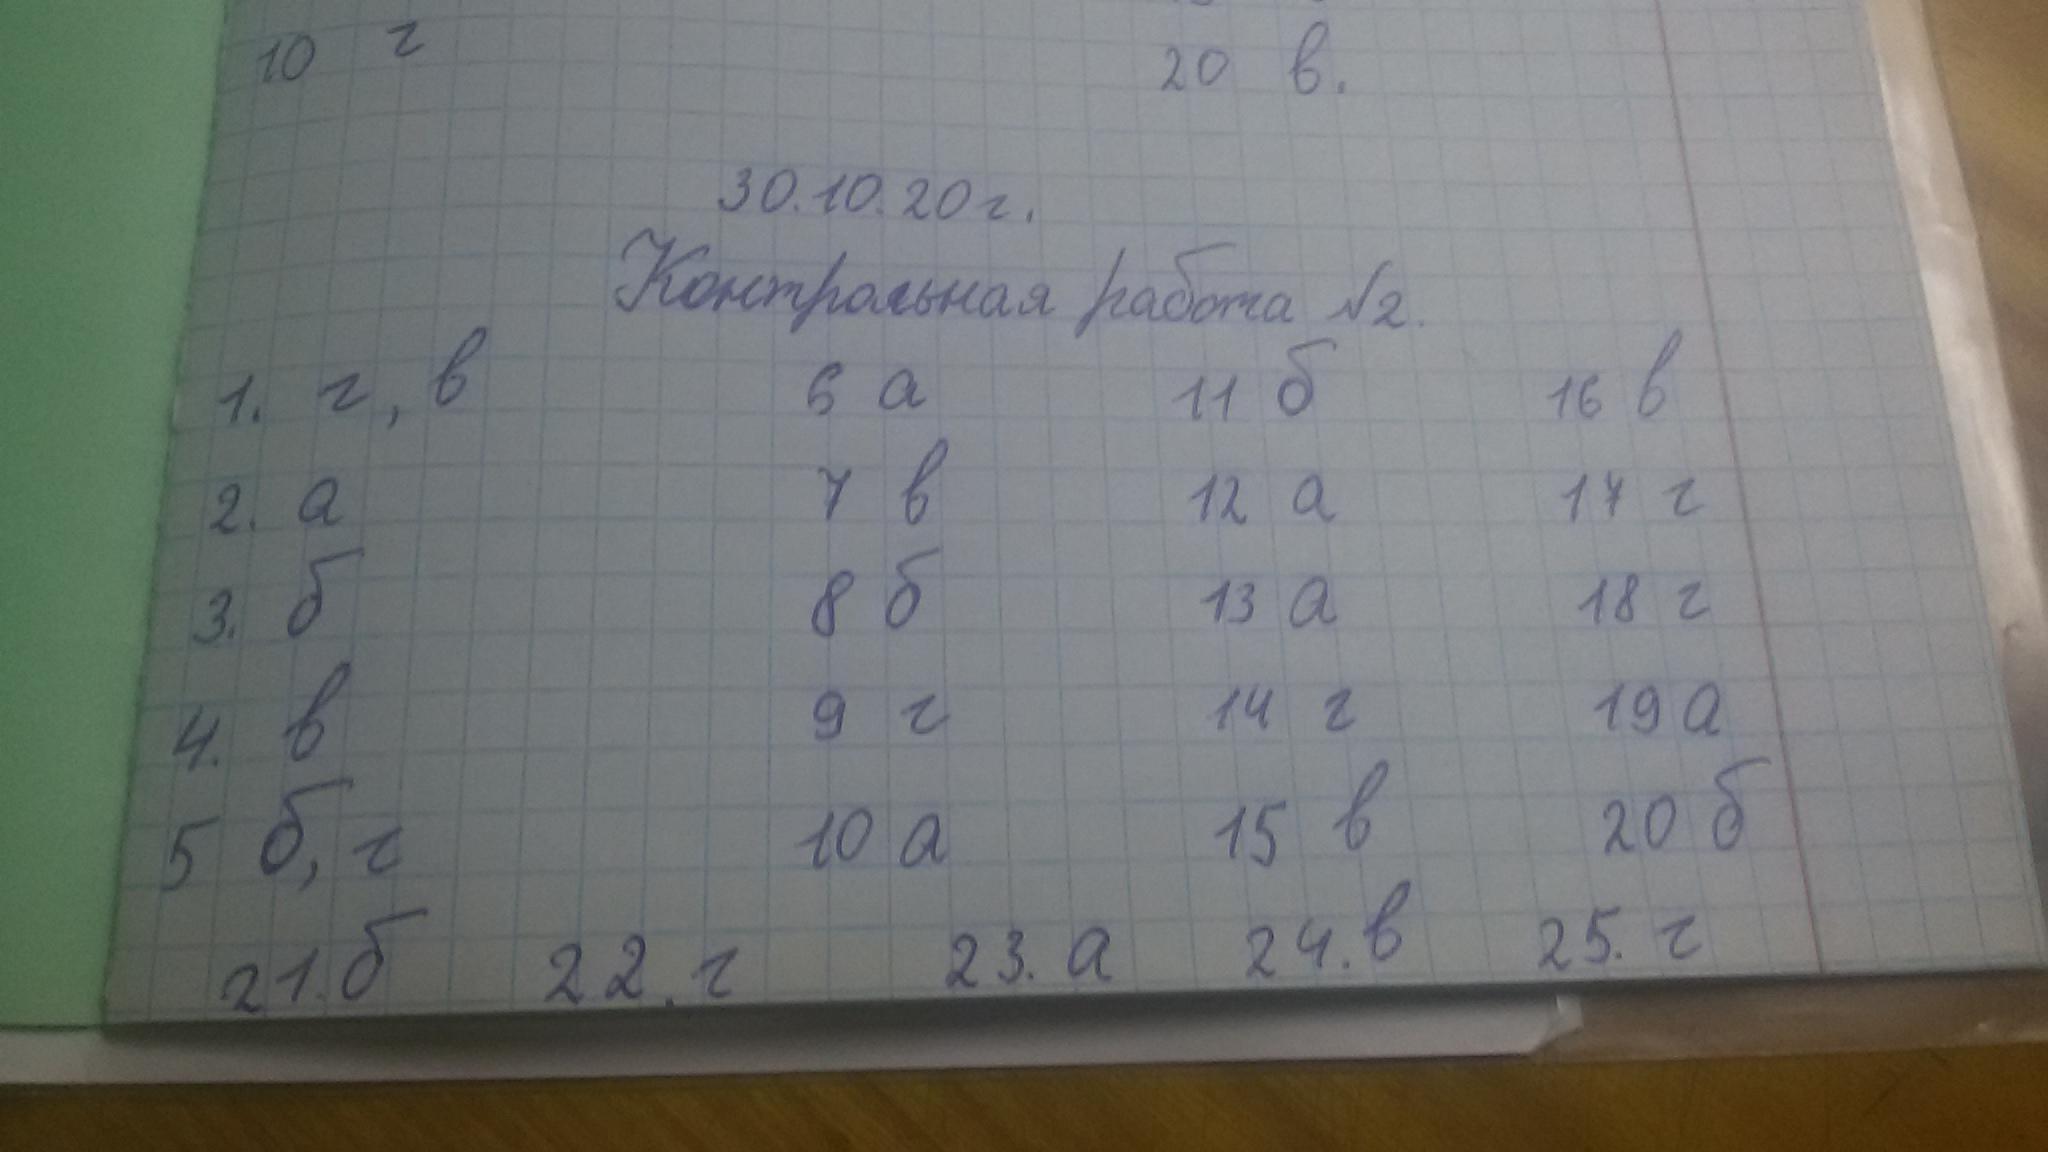 10 г 20 в.
30.10.20г.
Контрольная работа №2.
1. г, в 6 а 11 б 16 в
2. а 7 в 12 а 17 г
3. б 8 б 13 а 18 г
4. в 9 г 14 г 19 а
5 б, г 10 а 15 в 20 б
21. б 22. г 23. а 24. в 25. г